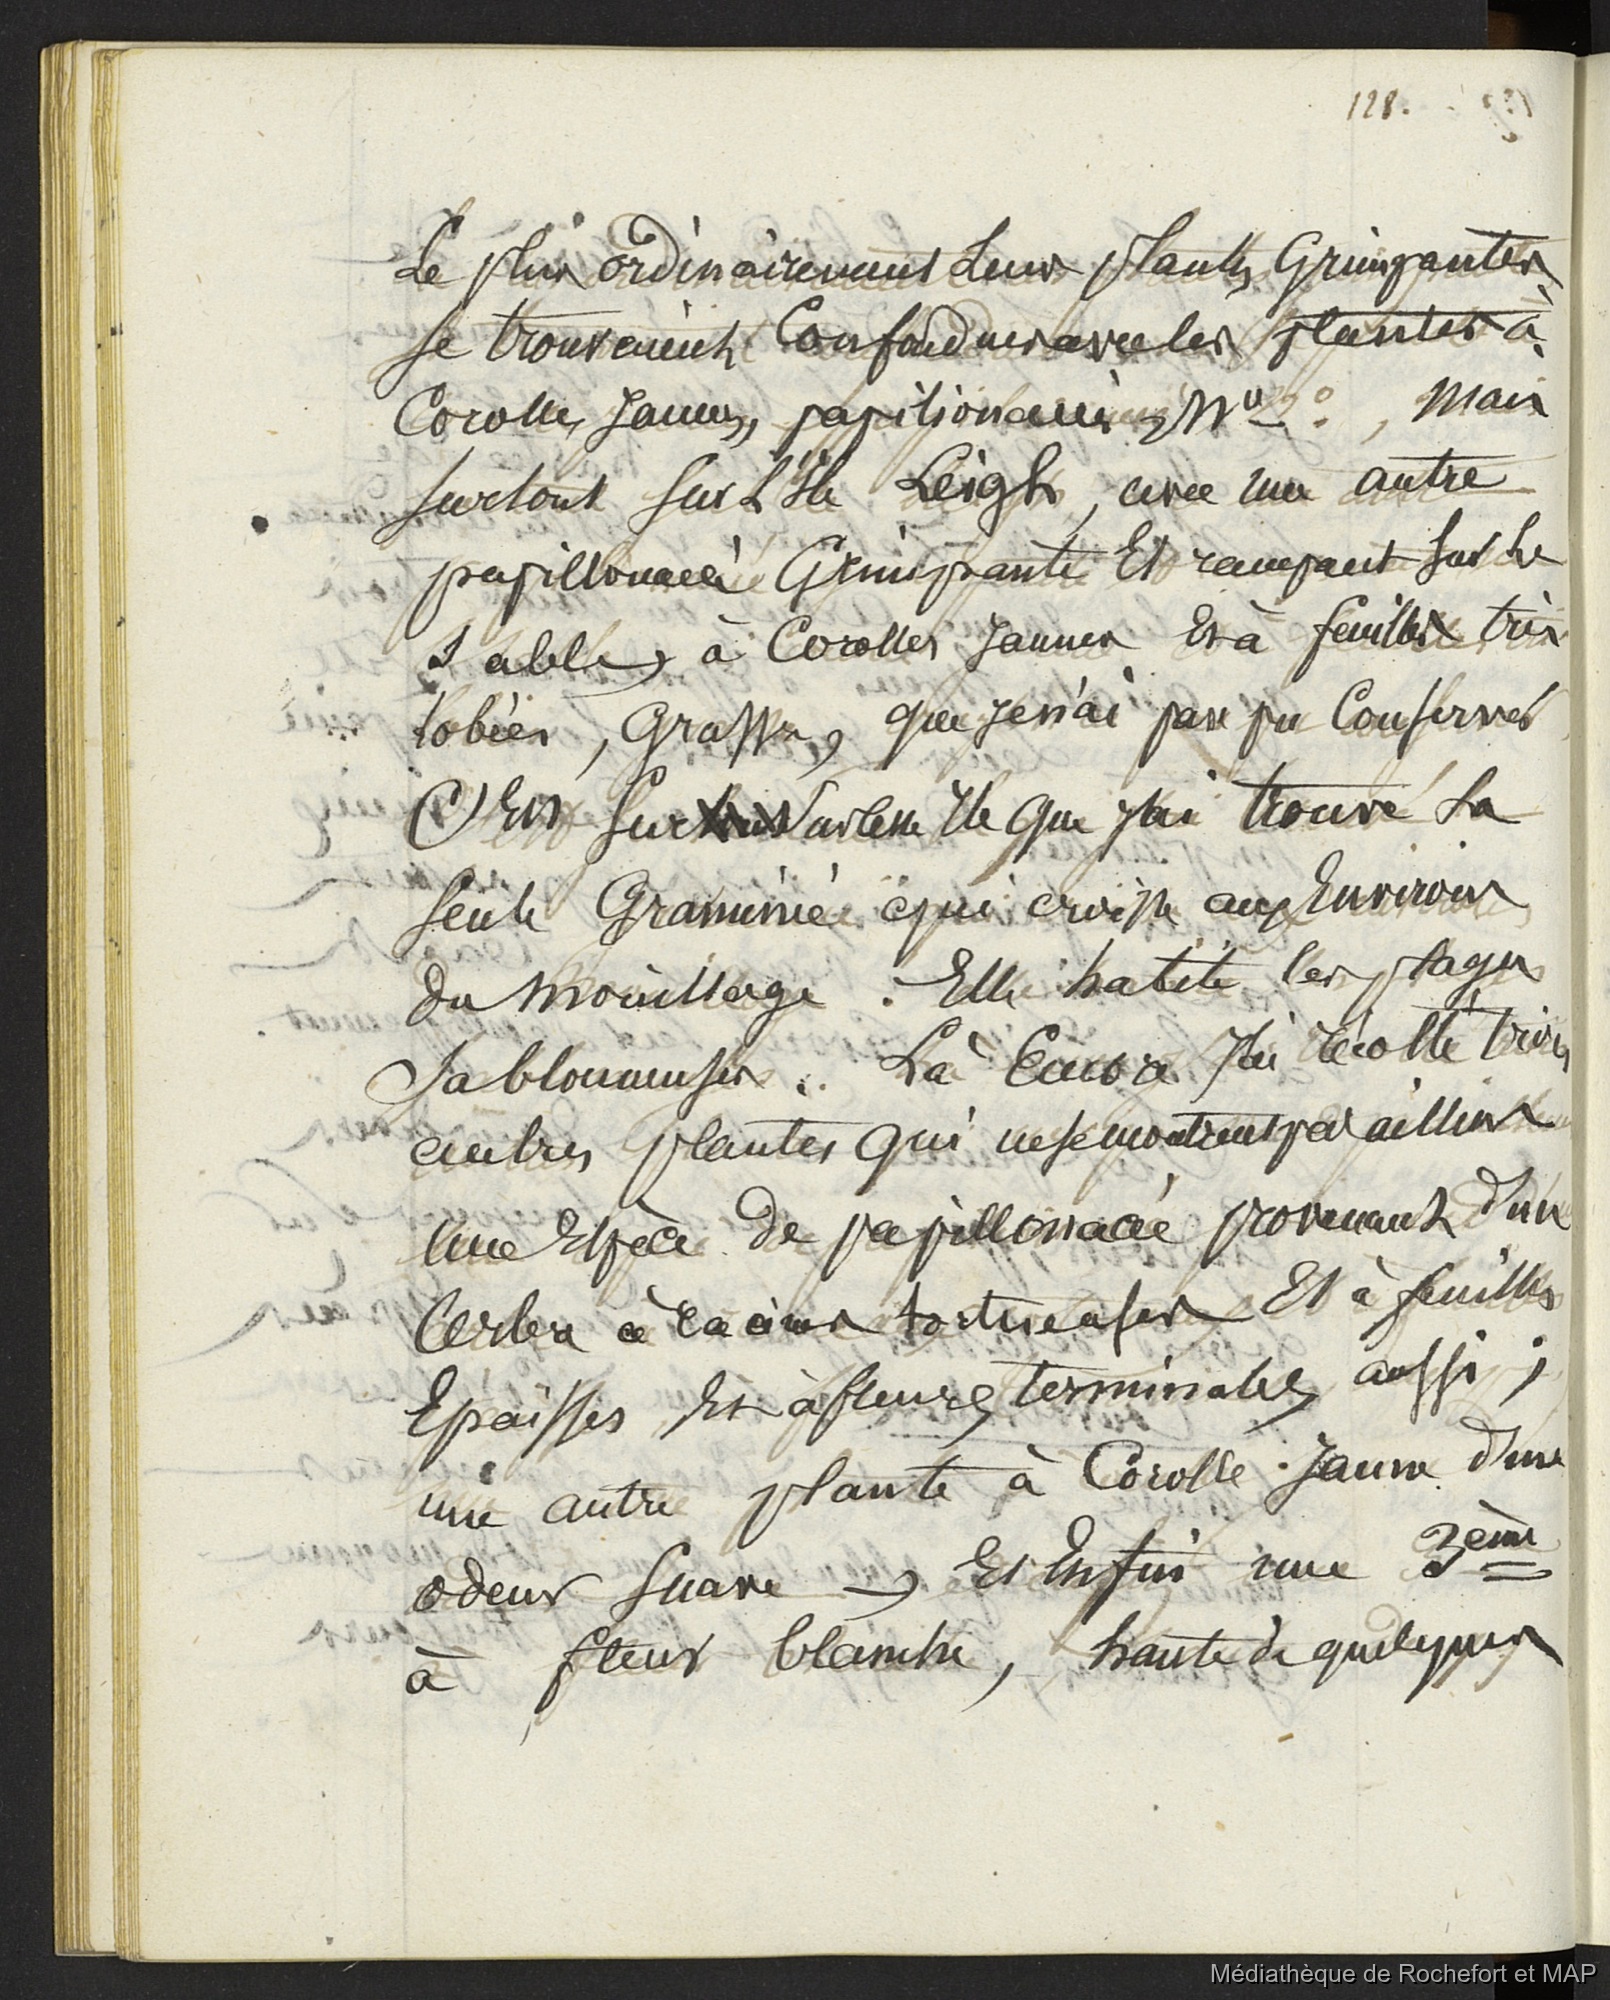 128.
Le plus ordinairement Leurs plantes Grimpantes
se trouvaient Confondues avec les plantes à
Corolles Jaunes, papilionacées, N° 2°, Mais
surtout sur L'Ile Leigh, avec une autre
papillonacée Grimpante Et rampant sur Le
sable, à Corolles Jaunes Et à feuilles très
lobées, Grasses, que je n'ai pas pu Conserver
C'Est sur cette Ile que j'ai trouvé La
seule Graminée qui croisse aux Environs
du Mouillage. Elle habite les plages
Sablonneuses. Là Encore j'ai récolté trois
autres plantes qui ne se montrent pas ailleurs
une Espèce de papillonacée provenant d'un
à racines tortueuses Et à feuilles
Epaisses Et à fleurs terminales aussi;
une autre plante à Corolle Jaune d'une
odeur suave, Et Enfin une 3ème
à fleur blanche, haute de quelques
Médiathèque de Rochefort et MAP